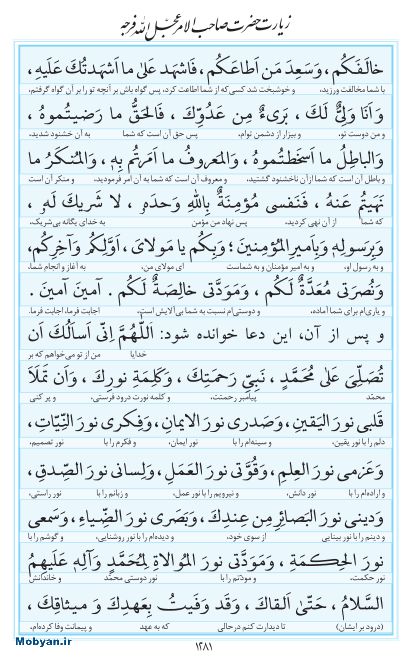 زیارت حضرت صاحب الامر عجل الله فرجه
خالَفَكُم ، وَسَعِدَ مَن اَطاعَكُم ، فَاشهَد عَلىٰ ما اَشهَدتُكَ عَلَيهِ ،
با شما مخالفت ورزید، و خوشبخت شد کسی که از شما اطاعت کرد، پس گواه باش بر آنچه تو را بر آن گواه گرفتم،
وَاَنَا وَلِيٌّ لَكَ ، بَرىءٌ مِن عَدُوِّكَ ، فَالحَقُّ ما رَضيتُموهُ ،
و من دوست تو، و بیزار از دشمن توام، پس حق آن است که شما به آن خشنود شدید،
وَالباطِلُ ما اَسخَطتُموهُ ، وَالمَعروفُ ما اَمَرتُم بِهِ ، وَالمُنكَرُ ما
و باطل آن است که شما از آن ناخشنود گشتید، و معروف آن است که شما به آن امر فرمودید، و منکر آن است
نَهَيتُم عَنهُ ، فَنَفسى مُؤمِنَةٌ بِاللهِ وَحدَهُ ، لا شَريكَ لَهُ ،
که شما از آن نهی کردید، پس نهاد من مؤمن به خدای یگانه بی‌شریک،
وَبِرَسولِهِ وَبِاَميرِ المُؤمِنينَ ؛ وَبِكُم يا مَولاىَ ، اَوَّلِكُم وَآخِرِكُم ،
و به رسول او، و به امیر مؤمنان و به شماست ای مولای من، به آغاز و انجام شما،
وَنُصرَتى مُعَدَّةٌ لَكُم ، وَمَوَدَّتى خالِصَةٌ لَكُم . آمينَ آمينَ .
و یاری‌ام برای شما آماده، و دوستی‌ام نسبت به شما بی آلایش است، اجابت فرما، اجابت فرما.
و پس از آن، این دعا خوانده شود: اَللّهُمَّ اِنّى اَساَلُكَ اَن
خدایا من از تو می‌خواهم که بر
تُصَلِّىَ عَلىٰ مُحَمَّدٍ ، نَبِىِّ رَحمَتِكَ ، وَكَلِمَةِ نورِكَ ، وَاَن تَملَاَ
محمّد پیامبر رحمتت، و کلمه نورت درود فرستی، و پر کنی
قَلبى نورَ اليَقينِ ، وَصَدرى نورَ الايمانِ ، وَفِكرى نورَ النِّيّاتِ ،
دلم را با نور یقین، و سینه‌ام را با نور ایمان، و فکرم را با نور تصمیم،
وَعَزمى نورَ العِلمِ ، وَقُوَّتى نورَ العَمَلِ ، وَلِسانى نورَ الصِّدقِ ،
و اراده‌ام را با نور دانش، و نیرویم را با نور عمل، و زبانم را با نور راستی،
وَدينى نورَ البَصائِرِ مِن عِندِكَ ، وَبَصَرى نورَ الضِّياءِ ، وَسَمعى
و دینم را با نور بینایی از سوی خود، و دیده‌ام را با نور روشنایی، و گوشم را با
نورَ الحِكمَةِ ، وَمَوَدَّتى نورَ المُوالاةِ لِمُحَمَّدٍ وَآلِهِ عَلَيهِمُ
نور حکمت، و مودّتم را با نور دوستی محمّد و خاندانش
السَّلامُ ، حَتّىٰ اَلقاكَ ، وَقَد وَفَيتُ بِعَهدِكَ وَ ميثاقِكَ ،
(درود بر ایشان) تا دیدارت کنم درحالی که به عهد و پیمانت وفا کرده‌ام،
Mobyan.ir
۱۲۸۱